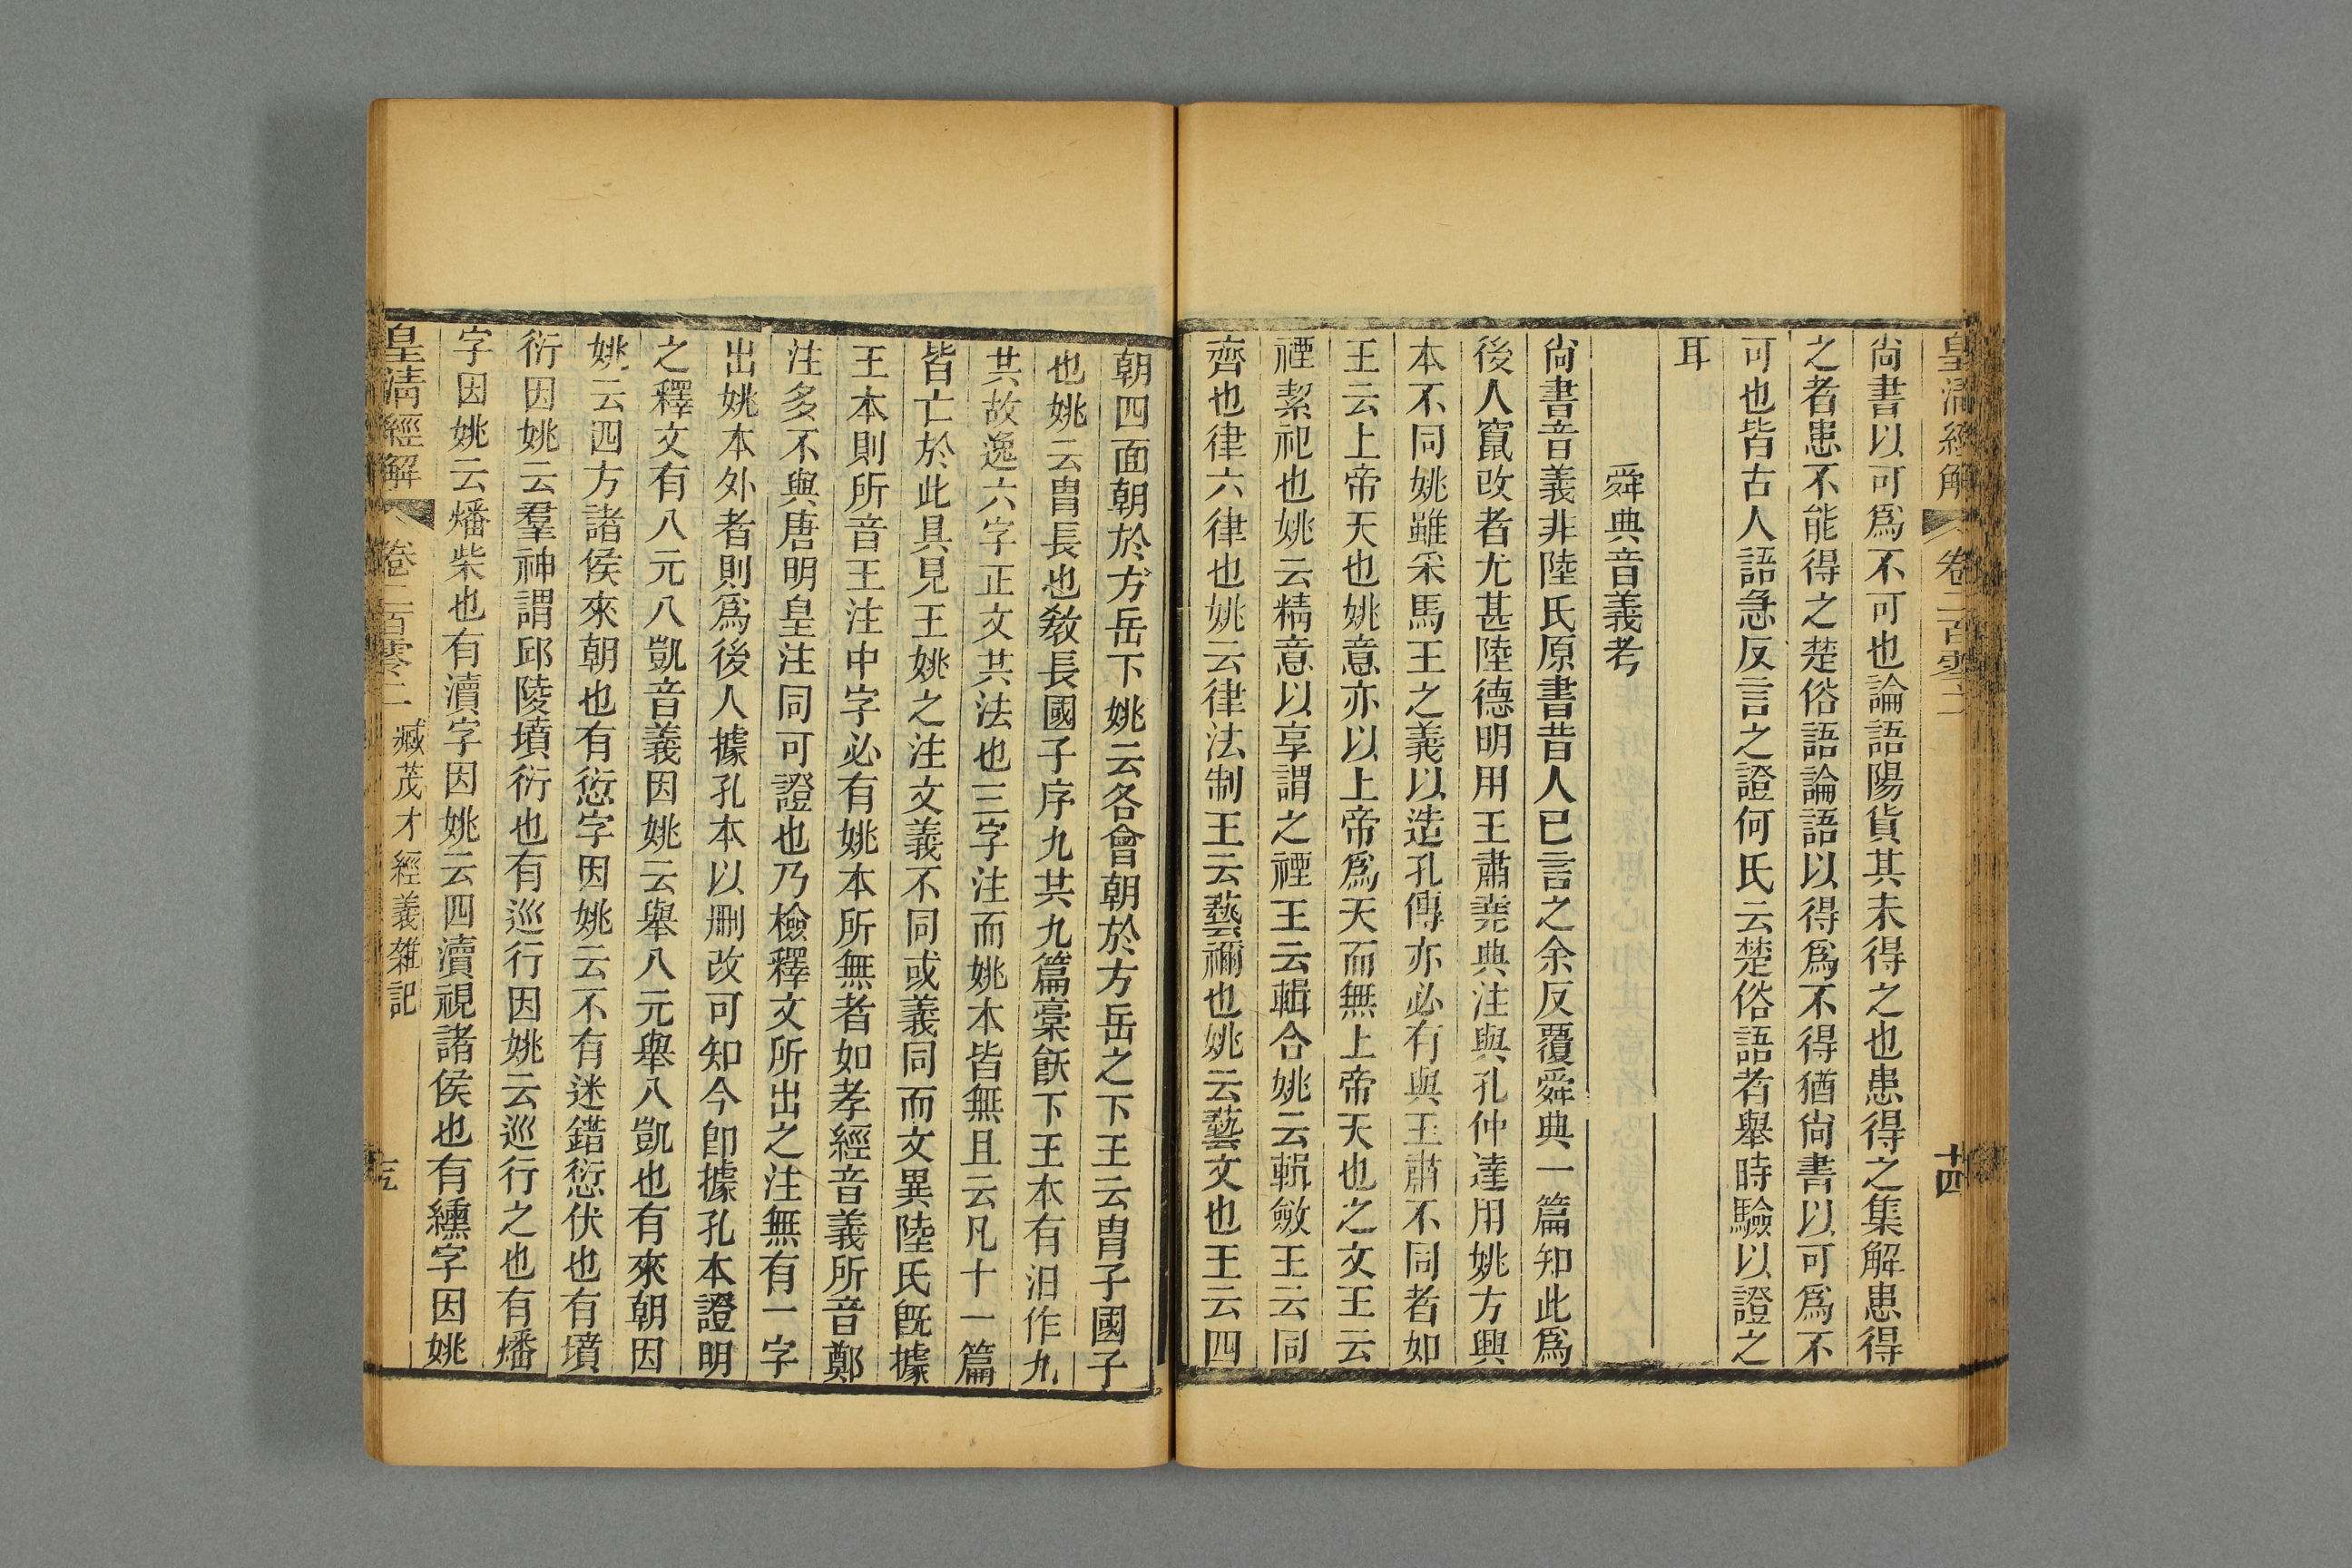 皇清經解 卷二百零二 十四
尚書以可爲不可也論語陽貨其未得之也患得之集解患得
之者患不能得之楚俗語論語以得爲不得猶尚書以可爲不
可也皆古人語急反言之證何氏云楚俗語者舉時驗以證之
耳
舜典音義考
尚書音義非陸氏原書昔人已言之余反覆舜典一篇知此爲
後人竄改者尤甚陸德明用王肅堯典注與孔仲達用姚方興
本不同姚雖采馬王之義以造孔傳亦必有與王肅不同者如
王云上帝天也姚意亦以上帝爲天而無上帝天也之文王云
禋絜祀也姚云精意以享謂之禋王云輯合姚云輯斂王云同
齊也律六律也姚云律法制王云藝禰也姚云藝文也王云四
朝四面朝於方岳下姚云各會朝於方岳之下王云胄子國子
也姚云胄長也敎長國子序九共九篇槀飫下王本有汨作九
共故逸六字正文共法也三字注而姚本皆無且云凡十一篇
皆亡於此具見王姚之注文義不同或義同而文異陸氏旣據
王本則所音王注中字必有姚本所無者如孝經音義所音鄭
注多不與唐明皇注同可證也乃檢釋文所出之注無有一字
出姚本外者則爲後人據孔本以刪改可知今卽據孔本證明
之釋文有八元八凱音義因姚云舉八元舉八凱也有來朝因
姚云四方諸侯來朝也有愆字因姚云不有迷錯愆伏也有墳
衍因姚云羣神謂邱陵墳衍也有巡行因姚云巡行之也有燔
字因姚云燔柴也有瀆字因姚云四瀆視諸侯也有纁字因姚
皇清經解 卷二百零二 臧茂才經義雜記